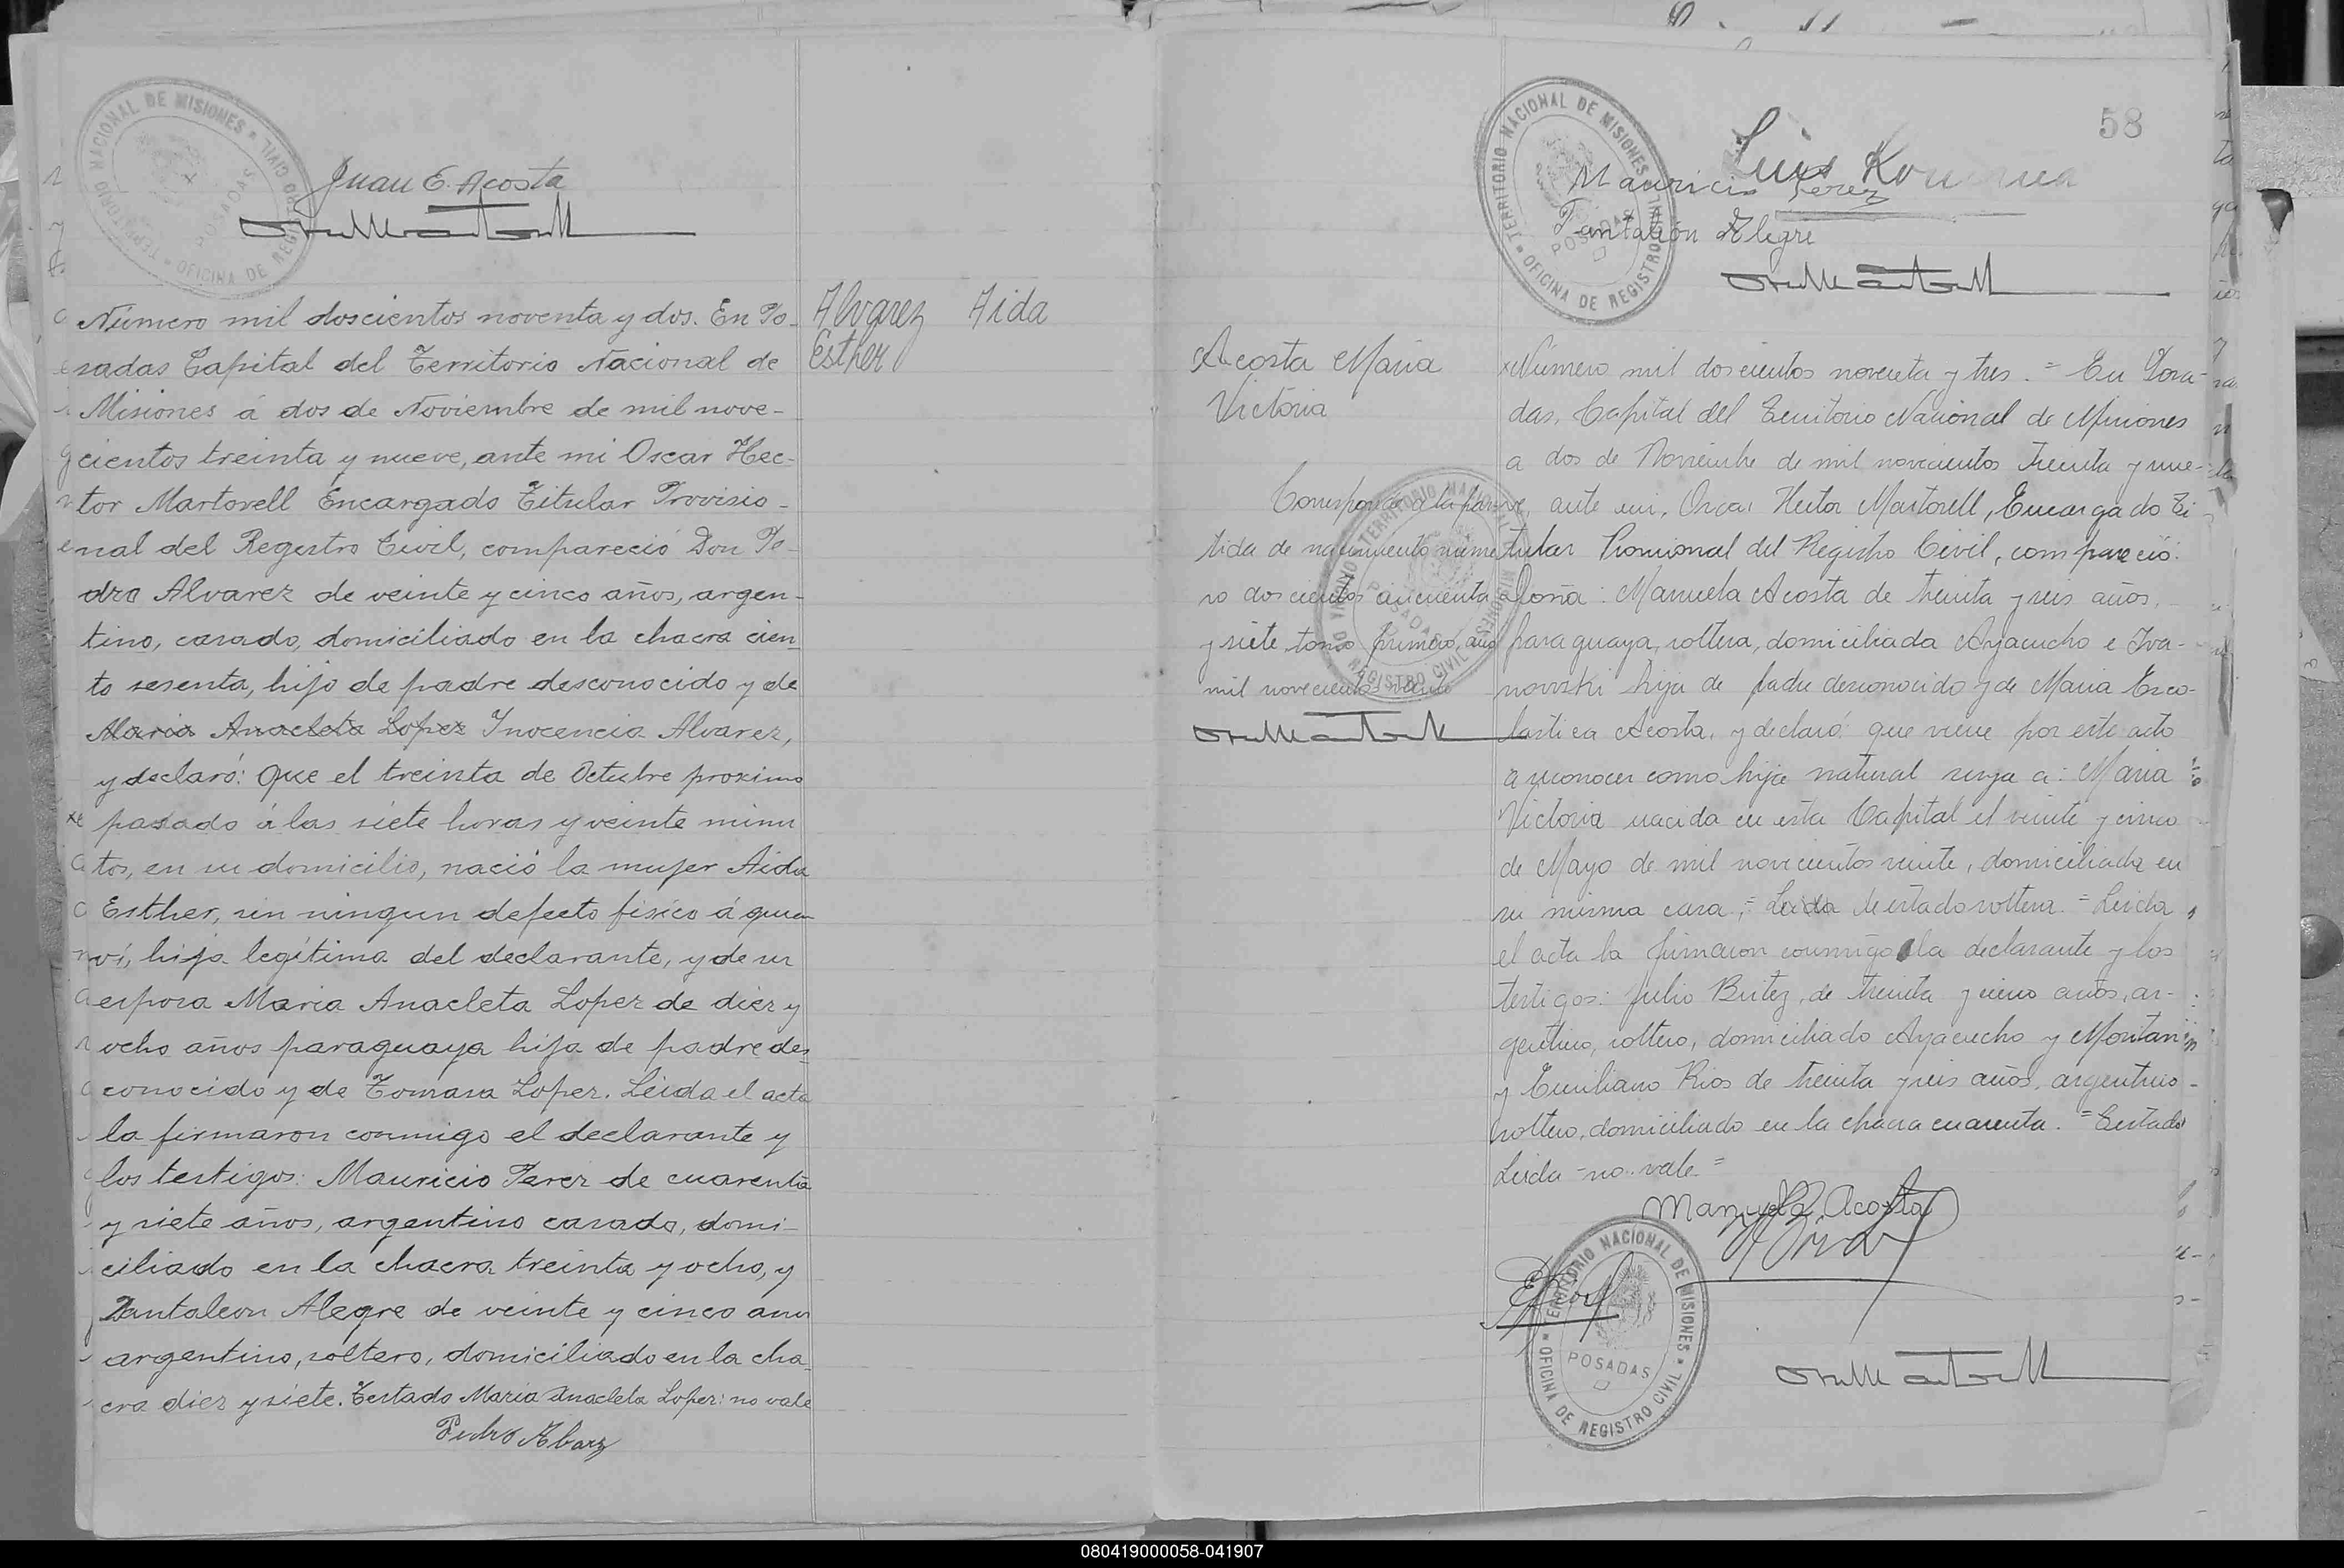 TERRITORIO NACIONAL DE MISIONES
OFICINA DE REGISTRO CIVIL
POSADAS
Juan E. Acosta
Número mil doscientos noventa y dos. En Po-
sadas Capital del Territorio Nacional de
Misiones á dos de Noviembre de mil nove-
cientos treinta y nueve, ante mi Oscar Hec-
tor Martorell Encargado Titular Proviso-
nal del Registro Civil, compareció Don Pe-
dro Alvarez de veinte y cinco años, argen-
tino, casado, domiciliado en la chacra cien
to sesenta, hijo de padre desconocido y de
Maria Anacleta Lopez Inocencia Alvarez,
y declaró: Que el treinta de Octubre proximo
pasado á las siete horas y veinte minu
tos, en su domicilio, nació la mujer Aida
Esther, sin ningun defecto fisico á quien
ví, hija legítima del declarante, y de su
esposa Maria Anacleta Lopez de diez y
ocho años paraguaya hija de padre des
conocido y de Tomasa Lopez. Leida el acta
la firmaron conmigo el declarante y
los testigos: Mauricio Perez de cuarenta
y siete años, argentino casado, domi-
ciliado en la chacra treinta y ocho, y
Pantaleon Alegre de veinte y cinco años
argentino, soltero, domiciliado en la cha
cra diez y siete. Testado Maria Anacleta Lopez: no vale
Pedro Alvarez
Alvarez Aida
Esther
58
TERRITORIO NACIONAL DE MISIONES
OFICINA DE REGISTRO CIVIL
POSADAS
Luis
Mauricio Perez
Pantalión Alegre
Acosta Maria
Victoria
Corresponde a la par-
tida de nacimiento núme
ro doscientos cincuenta
y siete, tomo primero, año
mil novecientos veinte
TERRITORIO NACIONAL DE MISIONES
REGISTRO CIVIL
POSADAS
Número mil doscientos noventa y tres. = En Posa-
das, Capital del Territorio Nacional de Misiones
a dos de Noviembre de mil novecientos treinta y nue-
ve, ante mi, Oscar Hector Martorell, Encargado Ti-
tular Provisional del Registro Civil, compareció:
Doña: Manuela Acosta de treinta y seis años,
paraguaya, soltera, domiciliada Ayacucho e Iva-
novski hija de padre desconocido y de Maria Esco-
lastica Acosta, y declaró: que viene por este acto
a reconocer como hija natural suya a: Maria
Victoria nacida en esta Capital el veinte y cinco
de Mayo de mil novecientos veinte, domiciliada en
su misma casa, = Leida de estado soltera. = Leida
el acta la firmaron conmigo la declarante y los
testigos: Julio Britez, de treinta y cinco años, ar-
gentino, soltero, domiciliado Ayacucho y Montan
y Emiliano Rios de treinta y seis años, argentino-
soltero, domiciliado en la chacra cuarenta. = Testado
Leida = no vale =
Manuela Acosta
TERRITORIO NACIONAL DE MISIONES
OFICINA DE REGISTRO CIVIL
POSADAS
080419000058-041907